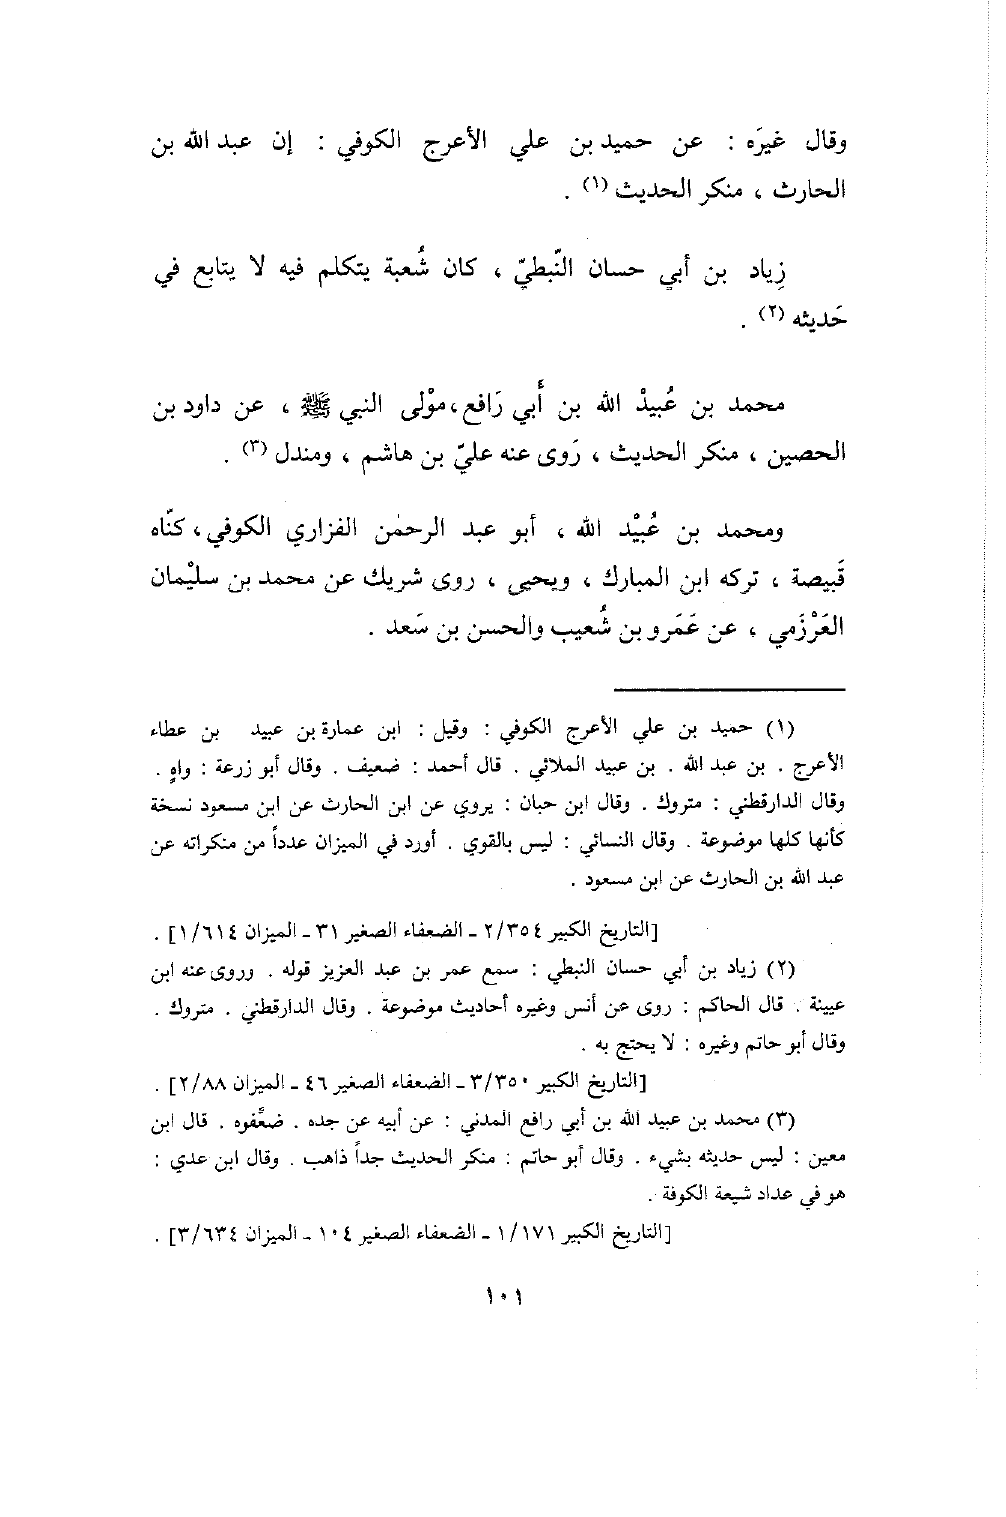 وقال غيرَه : عن حميد بن علي الأعرج الكوفي : إن عبد الله بن
الحارث ، منكر الحديث (١) .
زِياد بن أبي حسان النّبطيّ ، كان شُعبة يتكلم فيه لا يتابع في
حَديثه (٢) .
محمد بن عُبيدْ الله بن أَبي رَافع، موْلى النبي ﷺ ، عن داود بن
الحصين ، منكر الحديث ، رَوى عنه عليّ بن هاشم ، ومندل (٣) .
ومحمد بن عُبيْد الله ، أبو عبد الرحمٰن الفزاري الكوفي، كنّاه
قَبيصة ، تركه ابن المبارك ، ويحيى ، روى شريك عن محمد بن سليْمان
العَرْزَمي ، عن عَمَرو بن شُعيب والحسن بن سَعد .
(١) حميد بن علي الأعرج الكوفي : وقيل : ابن عمارة بن عبيد بن عطاء
الأعرج . بن عبد الله . بن عبيد الملائي . قال أحمد : ضعيف . وقال أبو زرعة : واهٍ .
وقال الدارقطني : متروك . وقال ابن حبان : يروي عن ابن الحارث عن ابن مسعود نسخة
كأنها كلها موضوعة . وقال النسائي : ليس بالقوي . أورد في الميزان عدداً من منكراته عن
عبد الله بن الحارث عن ابن مسعود .
[التاريخ الكبير ٢/٣٥٤ ـ الضعفاء الصغير ٣١ ـ الميزان ١/٦١٤] .
(٢) زياد بن أبي حسان النبطي : سمع عمر بن عبد العزيز قوله . وروى عنه ابن
عيينة . قال الحاكم : روى عن أنس وغيره أحاديث موضوعة . وقال الدارقطني . متروك .
وقال أبو حاتم وغيره : لا يحتج به .
[التاريخ الكبير ٣/٣٥٠ ـ الضعفاء الصغير ٤٦ ـ الميزان ٢/٨٨] .
(٣) محمد بن عبيد الله بن أبي رافع المدني : عن أبيه عن جده . ضعَّفوه . قال ابن
معين : ليس حديثه بشيء . وقال أبو حاتم : منكر الحديث جداً ذاهب . وقال ابن عدي :
هو في عداد شيعة الكوفة .
[التاريخ الكبير ١/١٧١ ـ الضعفاء الصغير ١٠٤ ـ الميزان ٣/٦٣٤] .
١٠١